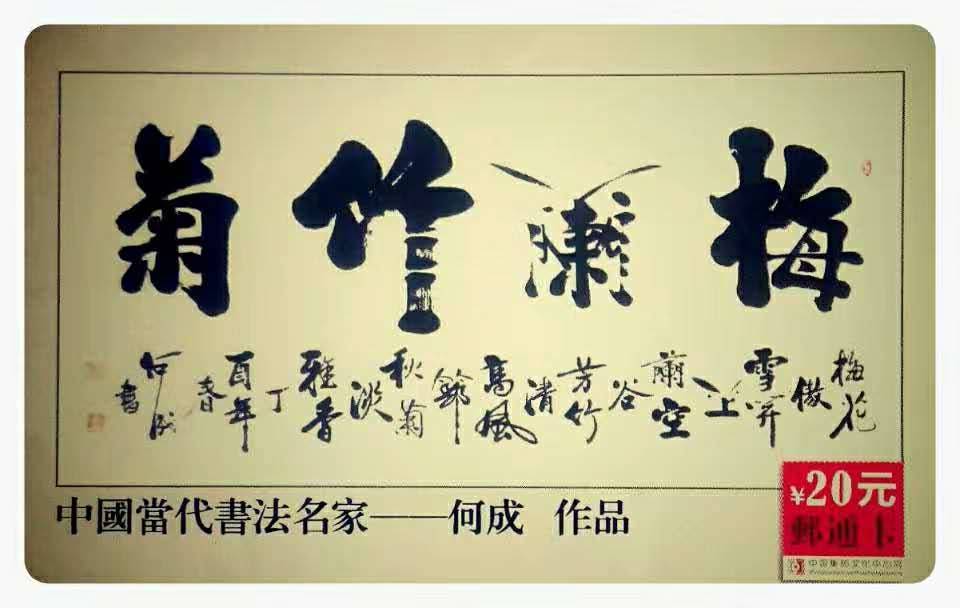 梅蘭竹菊
梅花傲雪開蘭空谷芳竹清高風節秋菊淡雅香丁酉年春何成書
中國當代書法名家——何成 作品
¥20元
郵通卡